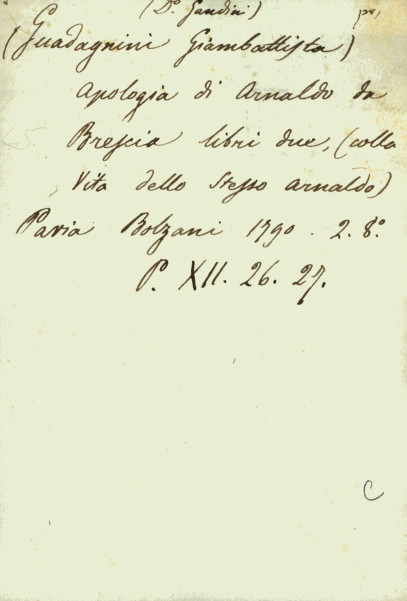 (D.º Gandini)
(Guadagnini Giambattista)
Apologia di Arnaldo da
Brescia libri due, (colla
Vita dello stesso Arnaldo)
Pavia Bolzani 1790. 2. 8.º
P. XII. 26. 27.
C